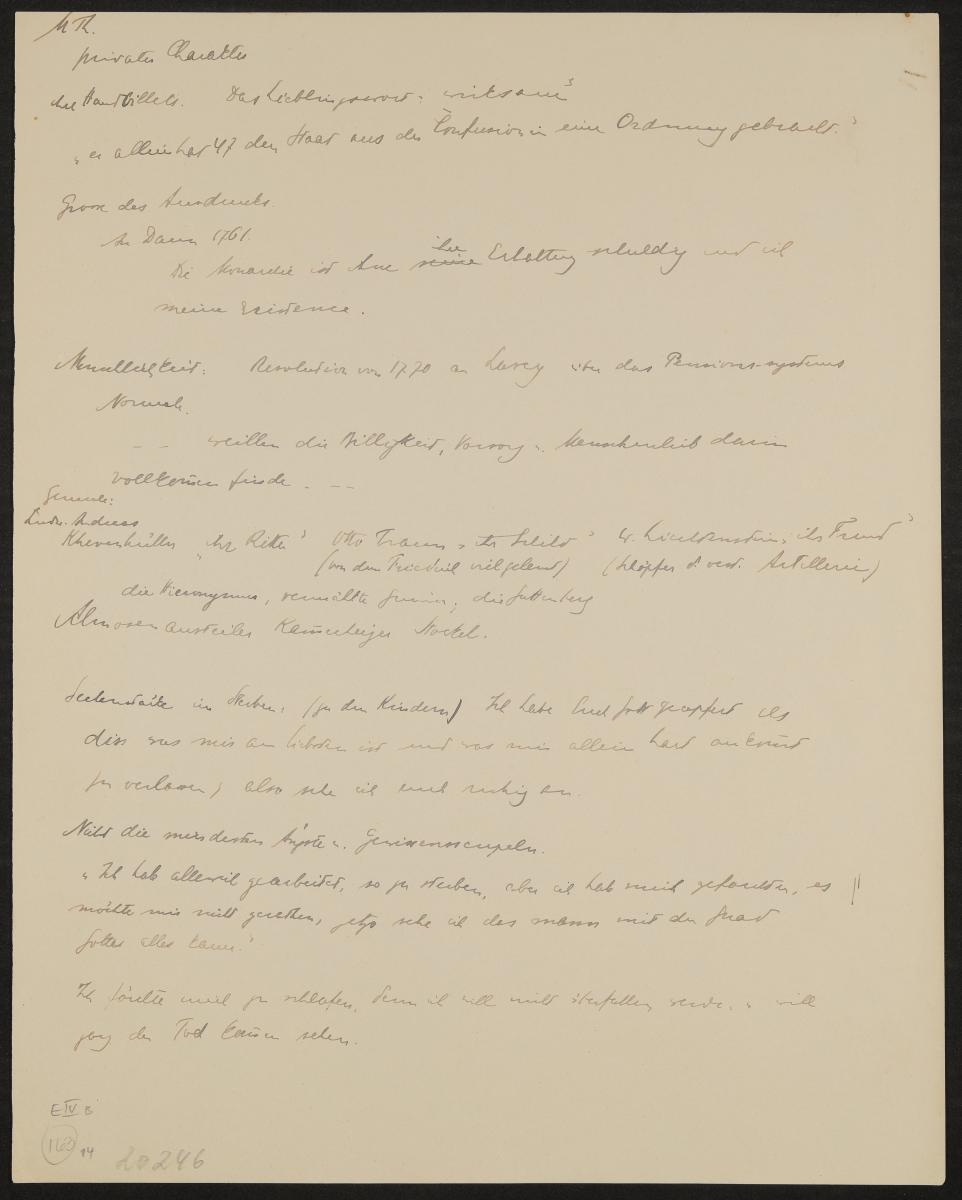 M Th.
privater Charakter
Ihre Handbillets. Das Lieblingswort: wirksam"
„er allein hat 47 den Staat aus der Confusion in eine Ordnung gebracht."
Grösse des Ausdrucks.
An Daun 1761.
Die Monarchie ist Ihne seine ihre Erhaltung schuldig und ich
meine Existence.
Menschlichkeit: Resolution von 1770 an Lascy über das Pensions-systems
Normale.
-- weillen die Billigkeit, Vorsorg u. Menschenlieb darin
vollkomen finde. --
Generale:
Ludw. Andreas
Khevenhüller „ihr Ritter" Otto Traun „ihr Schild" W. Liechtenstein „ihr Freund"
(von dem Friedrich viel gelernt) (Schöpfer d. verb. Artillerie)
die Hieronymus, vermählte; die Guttenberg
Almosenausteiler Kammerheizer Stockel.
Seelenstärke im Sterben: (zu den Kindern) Ich habe Euch Gott geopfert als
diss was mir am liebsten ist und was mir allein hart ankomt
zu verlassen; also sehe ich euch ruhig an.
Nicht die mindesten Ängste u. Gewissensscrupeln.
„Ich hab alleweil gearbeitet, so zu sterben, aber ich hab mich geforchten, es
möchte mir nicht gerathen, jetzo sehe ich das mann mit der Gnad
Gottes alles kann."
Ich förchte mich zu schlafen, denn ich will nicht überfallen werde u. will
ganz den Tod komen sehen.
E IV B
163 14 20246